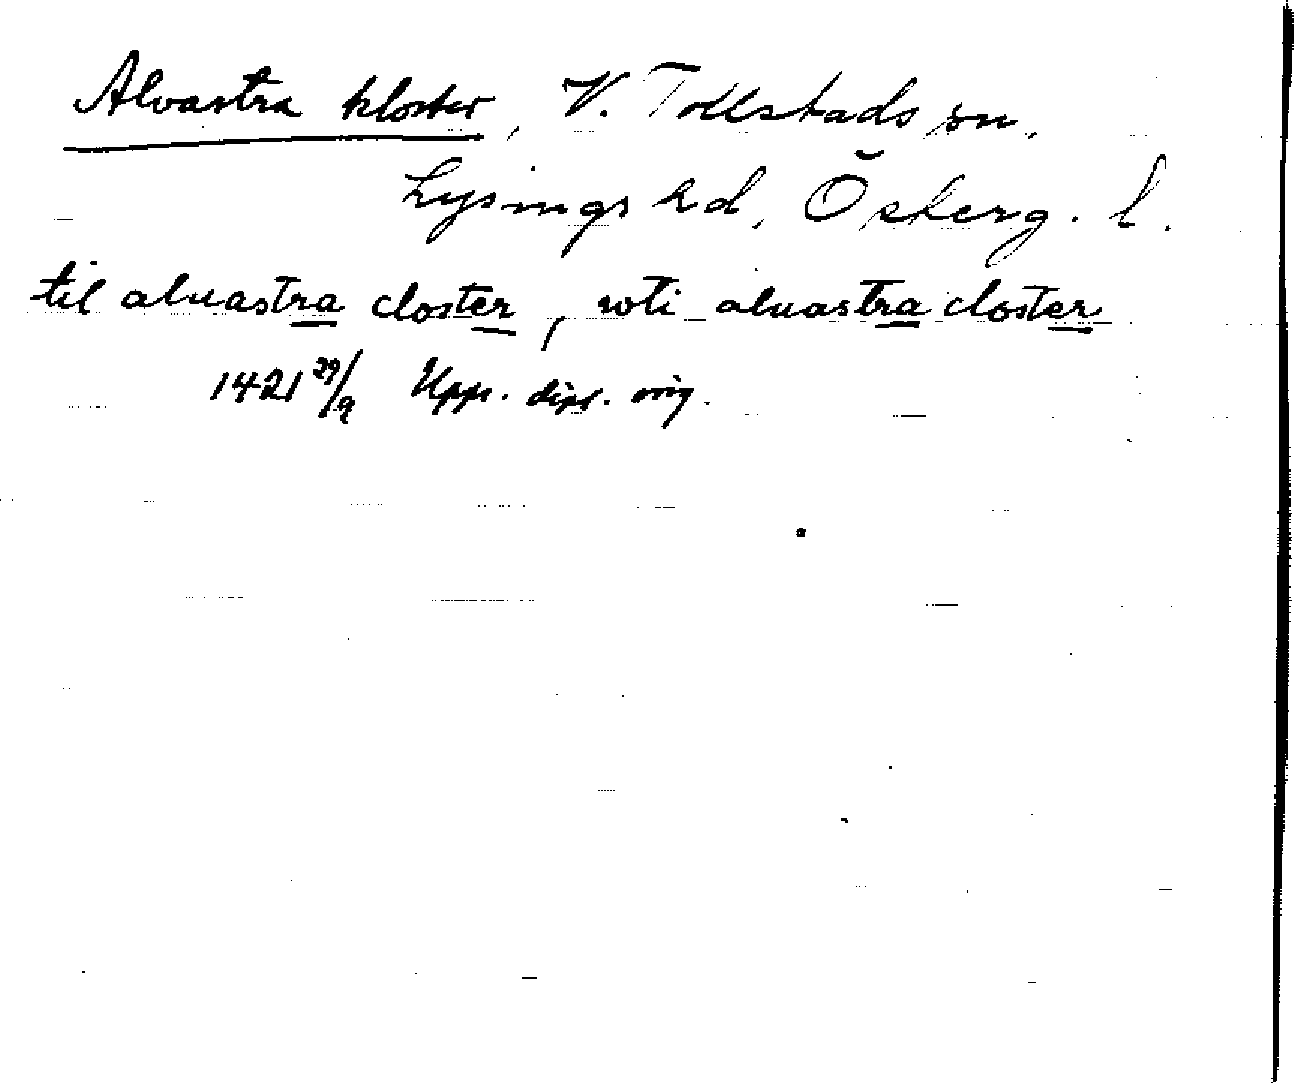 Alvastra kloster, V. Tollstads sn.
Lysings hd, Österg. l.
til aluastra closter, voti aluastra closter
1421 29/9 Upps. dipl. orig.